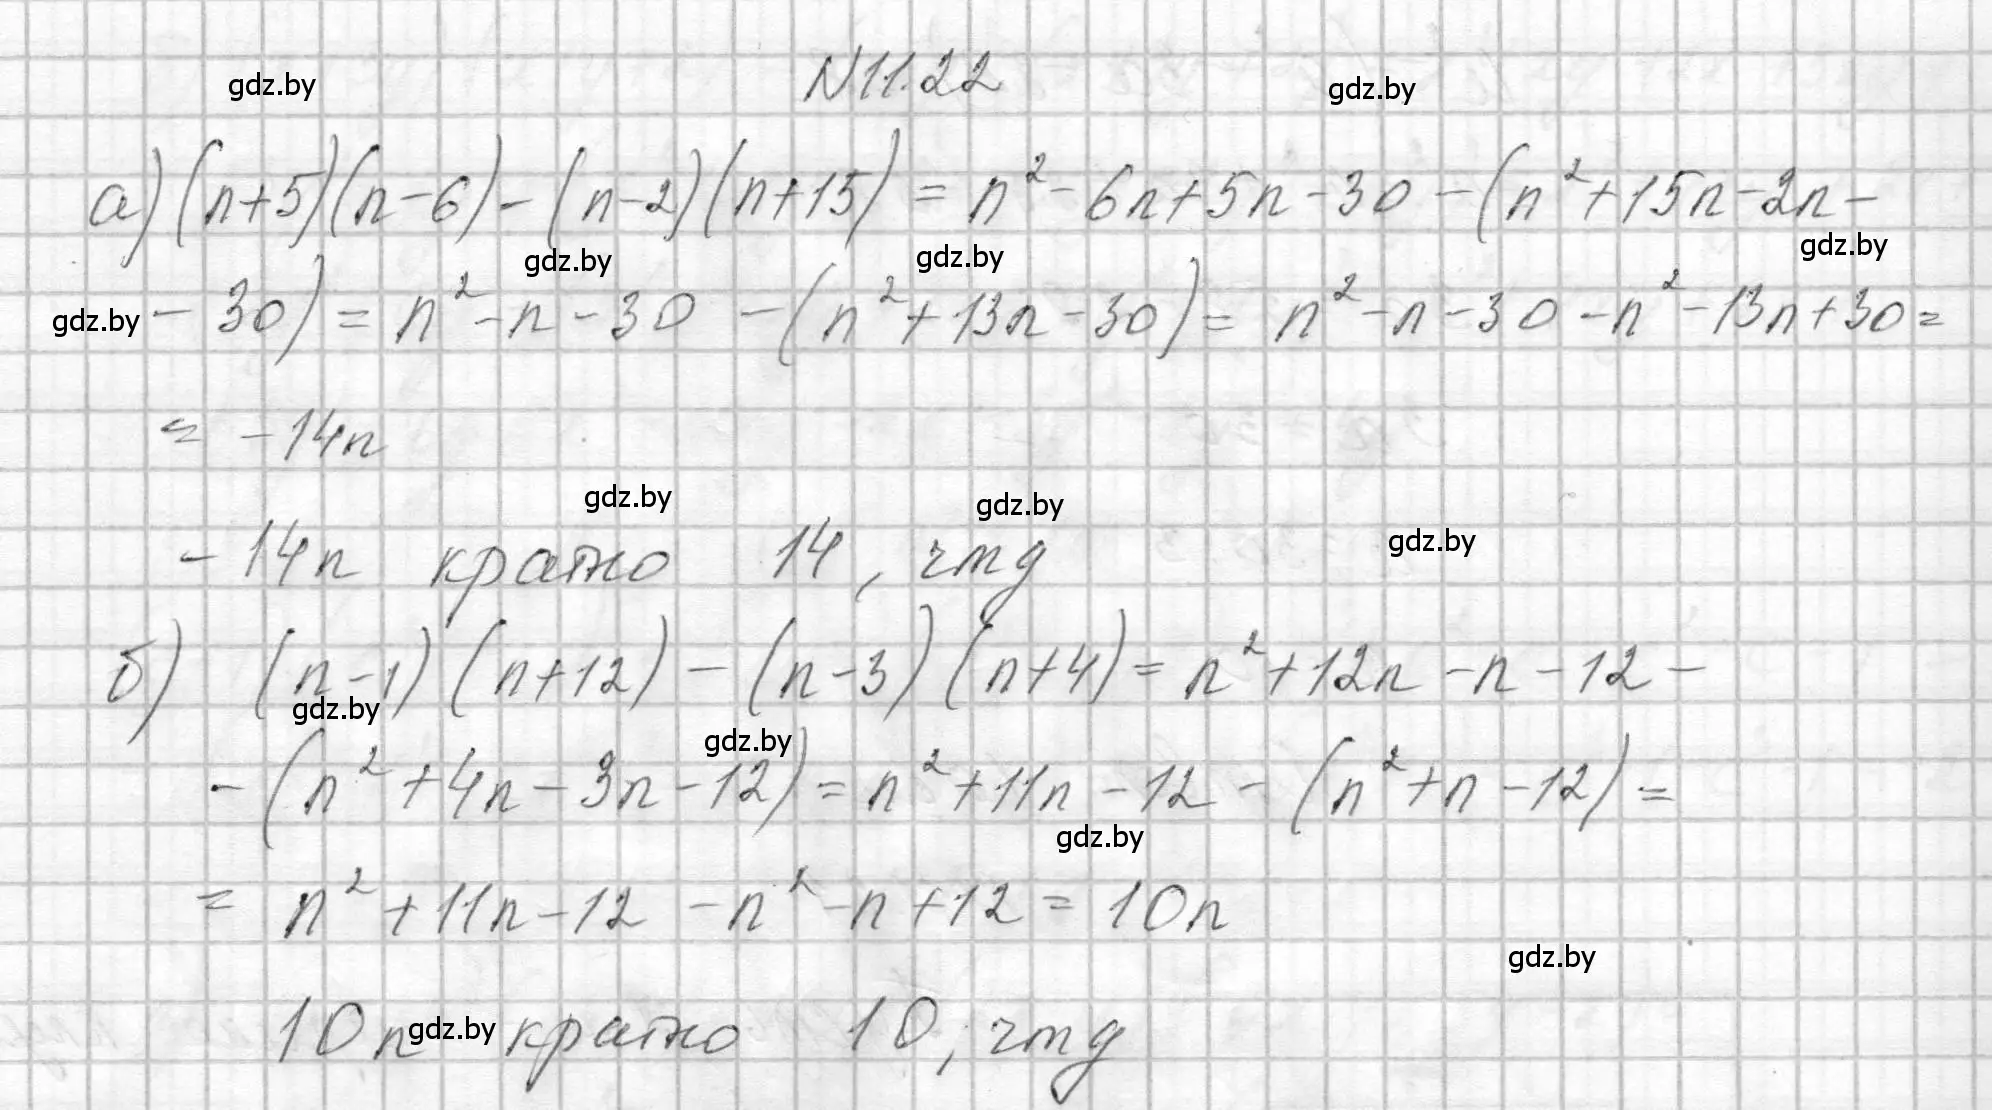 N11.22
gdz.by
gdz.by
а) (n+5)(n-6) - (n-2)(n+15) = n² - 6n + 5n - 30 - (n² + 15n - 2n -
gdz.by
gdz.by
gdz.by
gdz.by
- 30) = n² - n - 30 - (n² + 13n - 30) = n² - n - 30 - n² - 13n + 30 =
= -14n
gdz.by
gdz.by
gdz.by
-14n кратно 14, чтд
б) (n-1)(n+12) - (n-3)(n+4) = n² + 12n - n - 12 -
gdz.by
gdz.by
- (n² + 4n - 3n - 12) = n² + 11n - 12 - (n² + n - 12) =
gdz.by
= n² + 11n - 12 - n² - n + 12 = 10n
gdz.by
10n кратно 10, чтд
gdz.by